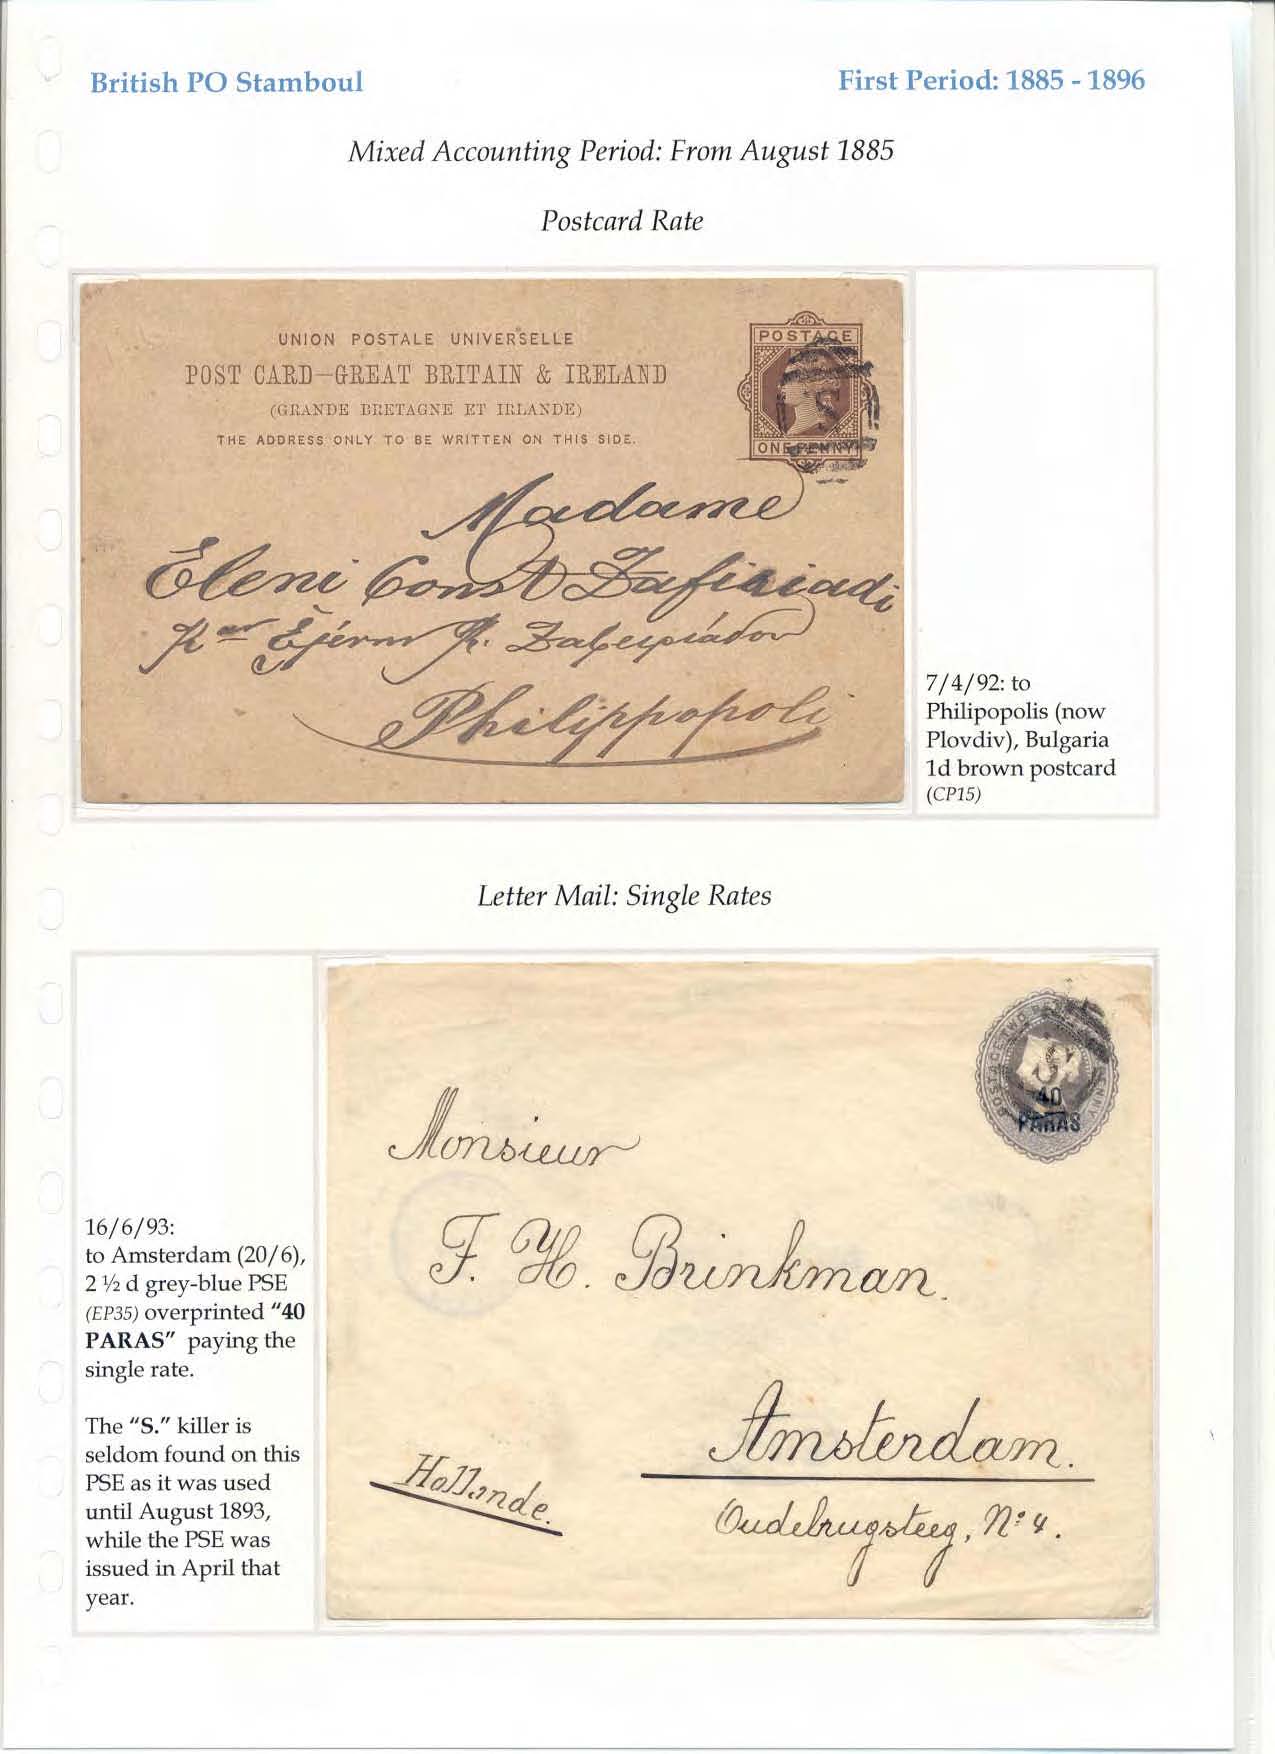 British PO Stamboul
First Period: 1885 - 1896
Mixed Accounting Period: From August 1885
Postcard Rate
UNION POSTALE UNIVERSELLE
POST CARD–GREAT BRITAIN & IRELAND
(GRANDE BRETAGNE ET IRLANDE)
THE ADDRESS ONLY TO BE WRITTEN ON THIS SIDE.
POSTAGE
S
ONE PENNY
Madame
Eleni Const Zafiriadi
Philippopoli
7/4/92: to
Philipopolis (now
Plovdiv), Bulgaria
1d brown postcard
(CP15)
Letter Mail: Single Rates
16/6/93:
to Amsterdam (20/6),
2 ½ d grey-blue PSE
(EP35) overprinted "40
PARAS" paying the
single rate.
The "S." killer is
seldom found on this
PSE as it was used
until August 1893,
while the PSE was
issued in April that
year.
S
40
PARAS
Monsieur
F. H. Brinkman.
Amsterdam.
Hollande.
Oudebrugsteeg, No: 4.